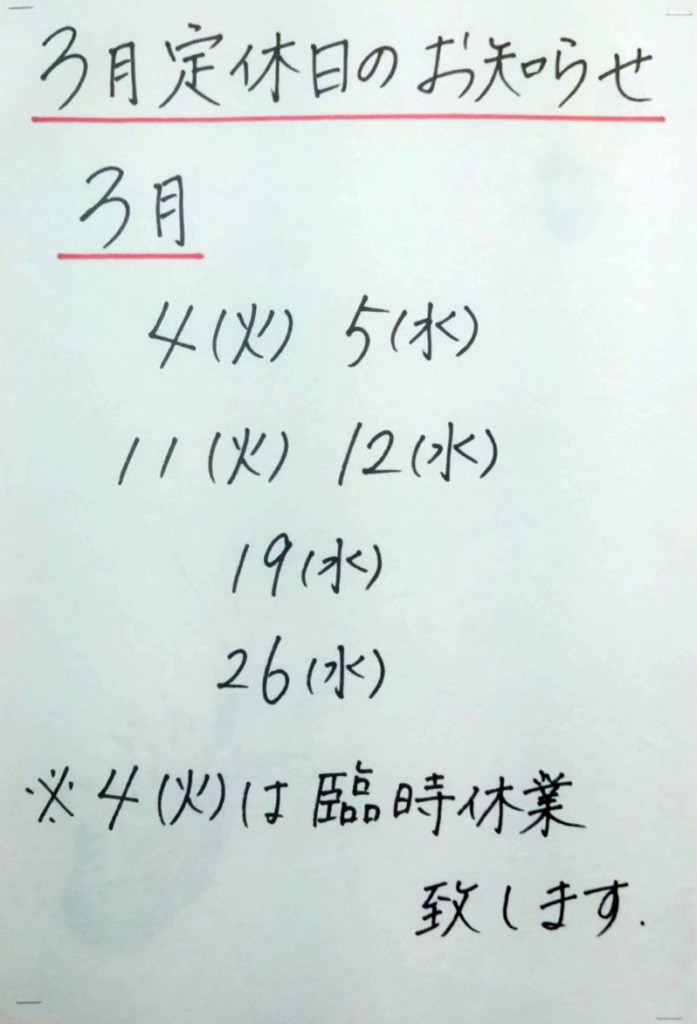 3月定休日のお知らせ
3月
4(火) 5(水)
11(火) 12(水)
19(水)
26(水)
※4(火)は臨時休業
致します.